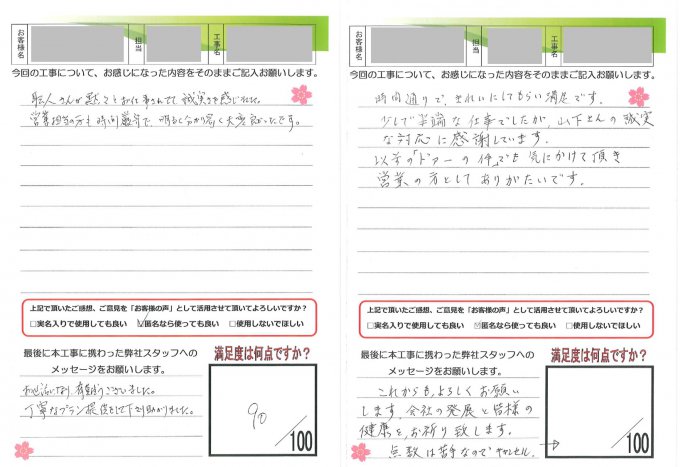 お客様名
担当
工事名
今回の工事について、お感じになった内容をそのままご記入お願いします。
職人さんが黙々とお仕事されてて誠実さを感じました。
営業担当の方も時間厳守で、明るく分かり易く大変良かったです。
上記で頂いたご感想、ご意見を「お客様の声」として活用させて頂いてよろしいですか？
□実名入りで使用しても良い ☑匿名なら使っても良い □使用しないでほしい
最後に本工事に携わった弊社スタッフへの
メッセージをお願いします。
お世話になり、有難うございました。
丁寧なプラン提供をして下さり助かりました。
満足度は何点ですか？
90
/100
お客様名
担当
工事名
今回の工事について、お感じになった内容をそのままご記入お願いします。
時間通りで、きれいにしてもらい満足です。
少しで半端な仕事でしたが、山下さんの誠実
な対応に感謝しています。
以前の「ドアーの件」でも気にかけて頂き
営業の方としてありがたいです。
上記で頂いたご感想、ご意見を「お客様の声」として活用させて頂いてよろしいですか？
□実名入りで使用しても良い ☑匿名なら使っても良い □使用しないでほしい
最後に本工事に携わった弊社スタッフへの
メッセージをお願いします。
これからも、よろしくお願い
します。会社の発展と皆様の
健康を、お祈り致します。
点数は苦手なのでキャンセル。→
満足度は何点ですか？
/100